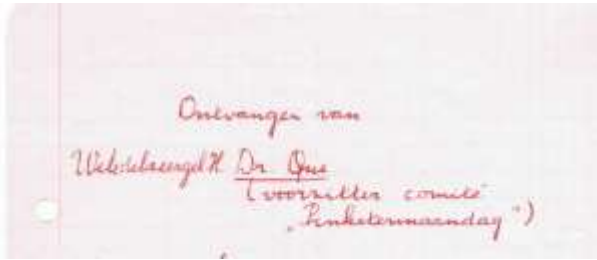 Ontvangen van
Weledelzeergel H Dr Que
(voorzitter comité
„Pinkstermaandag")